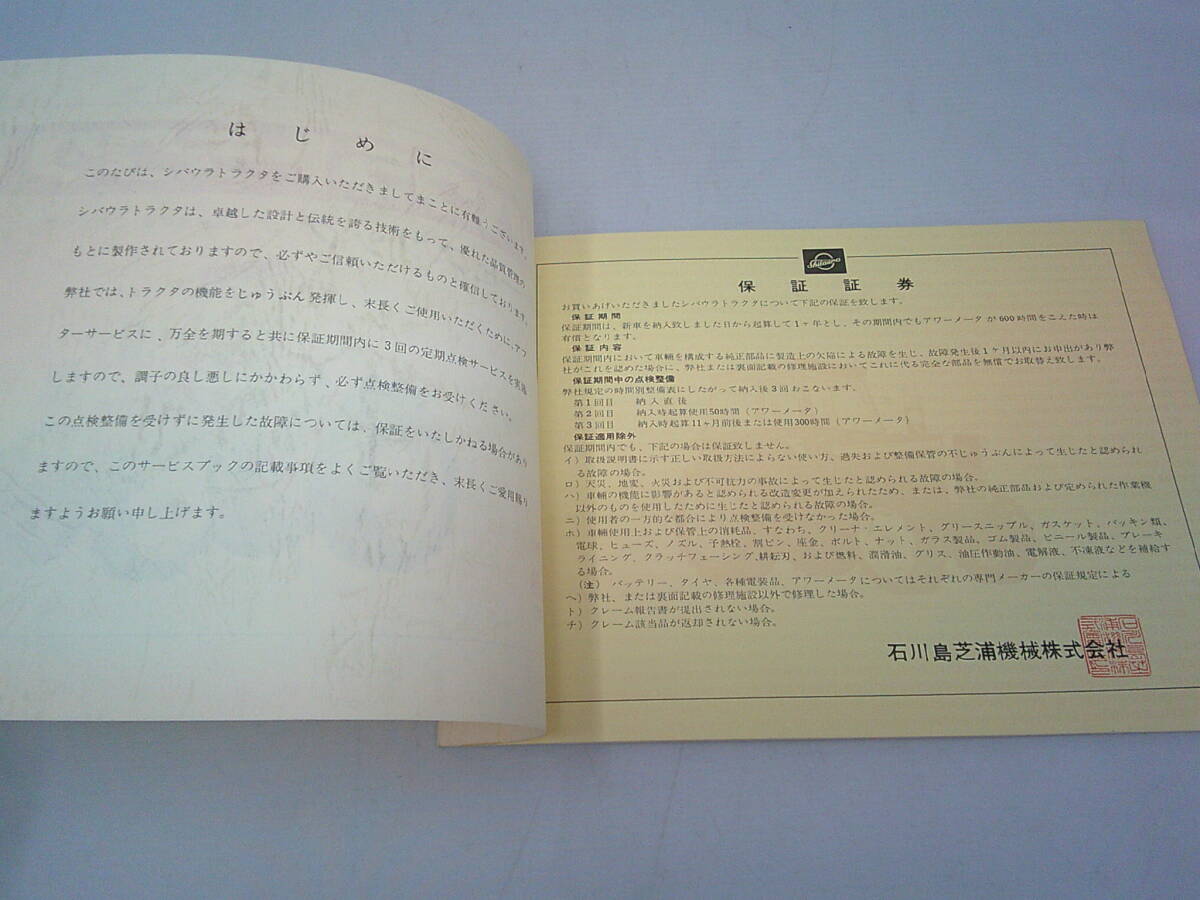 はじめに
このたびは、シバウラトラクタをご購入いただきましてまことに有難うございます。
シバウラトラクタは、卓越した設計と伝統を誇る技術をもって、優れた品質管理の
もとに製作されておりますので、必ずやご信頼いただけるものと確信しております。
弊社では、トラクタの機能をじゅうぶん発揮し、末長くご使用いただくために、アフ
ターサービスに、万全を期すると共に保証期間内に3回の定期点検サービスを実施
しますので、調子の良し悪しにかかわらず、必ず点検整備をお受けください。
この点検整備を受けずに発生した故障については、保証をいたしかねる場合があり
ますので、このサービスブックの記載事項をよくご覧いただき、末長くご愛用賜り
ますようお願い申し上げます。
Shibaura
保証証券
お買いあげいただきましたシバウラトラクタについて下記の保証を致します。
保証期間
保証期間は、新車を納入致しました日から起算して1ヶ年とし、その期間内でもアワーメータが600時間をこえた時は
有償となります。
保証内容
保証期間内において車輛を構成する純正部品に製造上の欠陥による故障を生じ、故障発生後1ヶ月以内にお申出があり弊
社がこれを認めた場合に、弊社または裏面記載の修理施設においてこれに代る完全な部品を無償でお取替え致します。
保証期間中の点検整備
弊社規定の時間別整備表にしたがって納入後3回おこないます。
第1回目 納入直後
第2回目 納入時起算使用50時間(アワーメータ)
第3回目 納入時起算11ヶ月前後または使用300時間(アワーメータ)
保証適用除外
保証期間内でも、下記の場合は保証致しません。
イ)取扱説明書に示す正しい取扱方法によらない使い方、過失および整備保管の不じゅうぶんによって生じたと認められ
る故障の場合。
ロ)天災、地変、火災および不可抗力の事故によって生じたと認められる故障の場合。
ハ)車輛の機能に影響があると認められる改造変更が加えられたため、または、弊社の純正部品および定められた作業機
以外のものを使用したために生じたと認められる故障の場合。
ニ)使用者の一方的な都合により点検整備を受けなかった場合。
ホ)車輛使用上および保管上の消耗品、すなわち、クリーナ・エレメント、グリースニップル、ガスケット、パッキン類、
電球、ヒューズ、ノズル、予熱栓、割ピン、座金、ボルト、ナット、ガラス製品、ゴム製品、ビニール製品、ブレーキ
ライニング、クラッチフェーシング、耕耘刃、および燃料、潤滑油、グリス、油圧作動油、電解液、不凍液などを補給す
る場合。
(注) バッテリー、タイヤ、各種電装品、アワーメータについてはそれぞれの専門メーカーの保証規定による
ヘ)弊社、または裏面記載の修理施設以外で修理した場合。
ト)クレーム報告書が提出されない場合。
チ)クレーム該当品が返却されない場合。
石川島芝浦機械株式会社